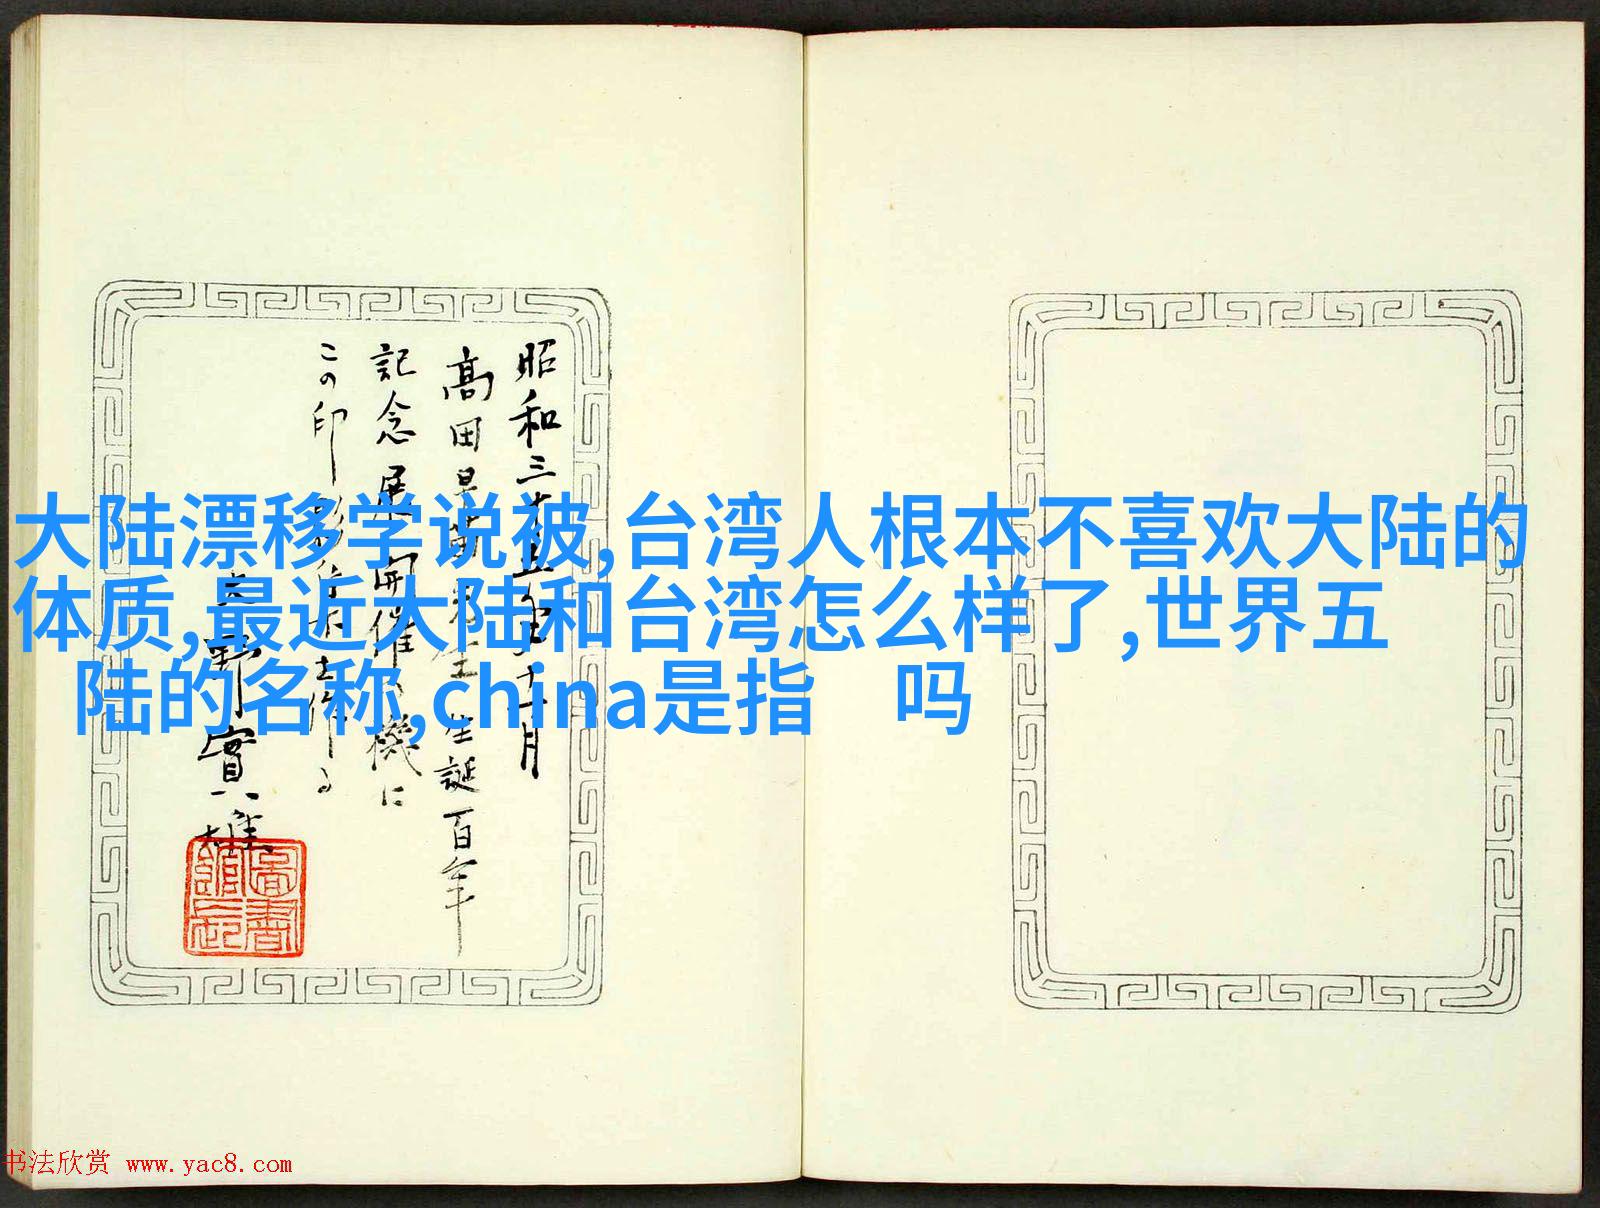 大陆漂移学说被,台湾人根本不喜欢大陆的
体质,最近大陆和台湾怎么样了,世界五
陆的名称,china是指 吗
昭和三十五年十一月
高田早苗先生生誕百年
記念展開催、機に
この印
大野實雄
圖書
館長
书法欣赏 www.yac8.com